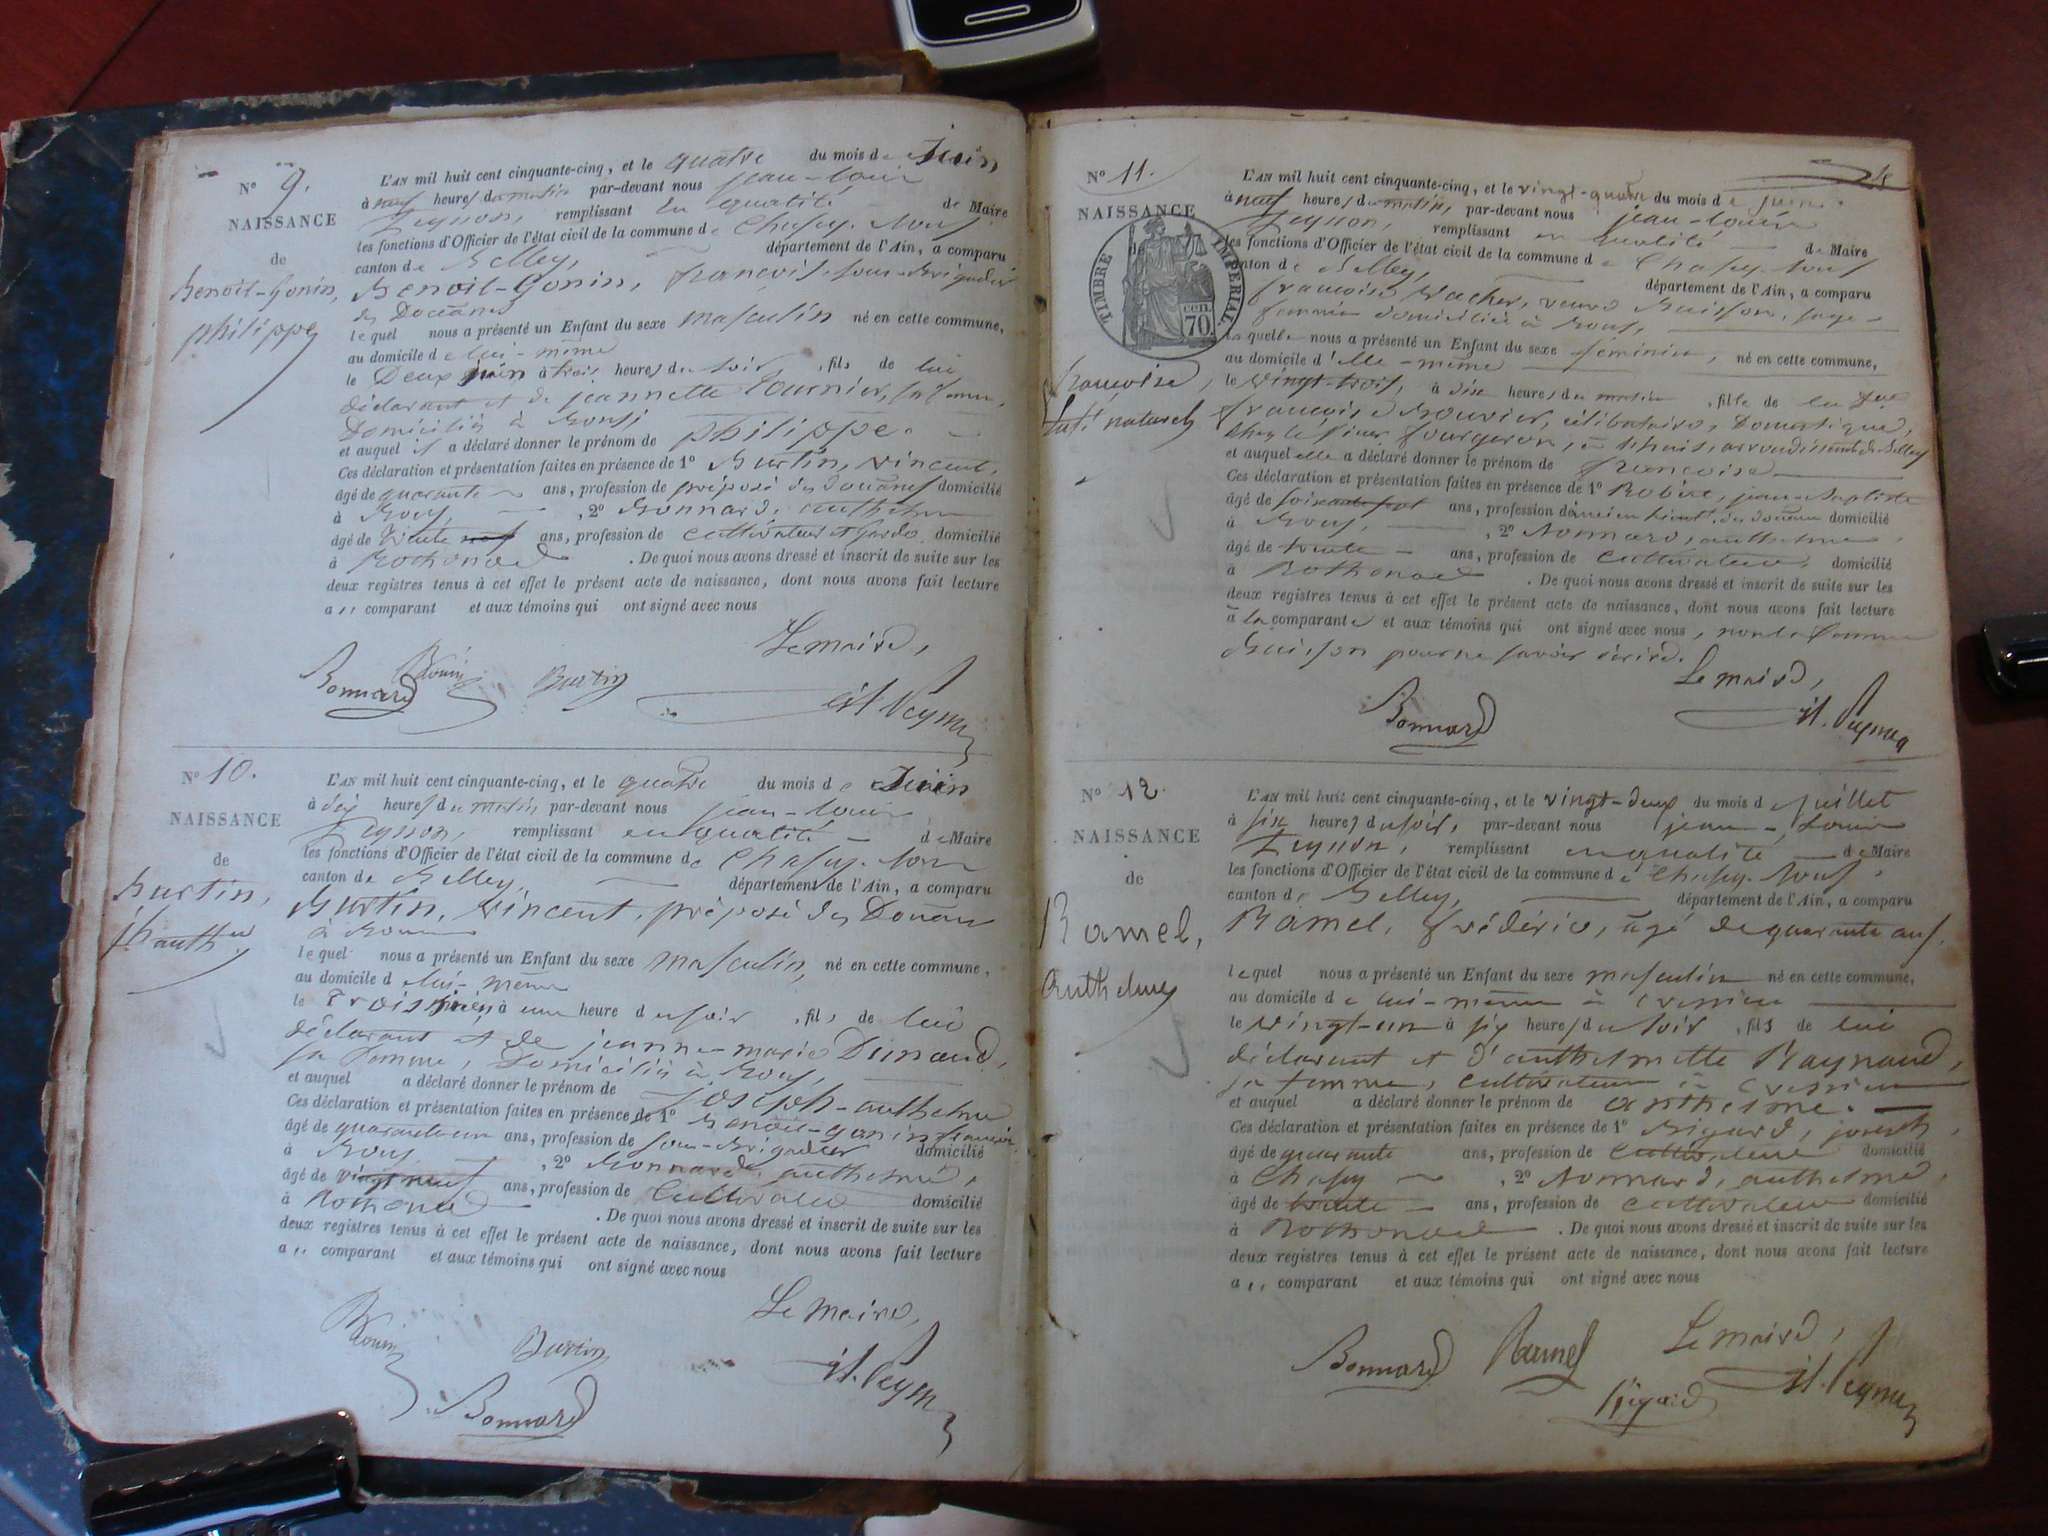 N° 9.
NAISSANCE
de
Benoit-Gonin,
philippe
L'AN mil huit cent cinquante-cinq, et le quatre du mois de Juin
à neuf heures du matin par-devant nous jean-louis
Peysson, remplissant en qualité de Maire
les fonctions d'Officier de l'état civil de la commune de Chasey-bons
canton de Belley, département de l'Ain, a comparu
Benoit-Gonin, françois, sous-Brigadier
des Douanes
lequel nous a présenté un Enfant du sexe masculin né en cette commune,
au domicile de lui-même
le Deux juin à trois heures du soir, fils de lui
déclarant et de jeannette fournier, sa femme,
Domiciliés à Bons,
et auquel il a déclaré donner le prénom de philippe.
Ces déclaration et présentation faites en présence de 1° Burtin, vincent,
âgé de quarante ans, profession de préposé des douanes domicilié
à Bons, 2° Bonnard, anthelme
âgé de ans, profession de cultivateur et garde domicilié
à Rothonod. De quoi nous avons dressé et inscrit de suite sur les
deux registres tenus à cet effet le présent acte de naissance, dont nous avons fait lecture
au comparant et aux témoins qui ont signé avec nous
Le maire,
Bonnard Burtin
N° 10.
NAISSANCE
de
Burtin,
jh anthe
L'AN mil huit cent cinquante-cinq, et le quatre du mois de Juin
à dix heures du matin, par-devant nous jean-louis
Peysson, remplissant en qualité de Maire
les fonctions d'Officier de l'état civil de la commune de Chasey-bons
canton de Belley, département de l'Ain, a comparu
Burtin, vincent, préposé des Douanes
à Bons
lequel nous a présenté un Enfant du sexe masculin, né en cette commune,
au domicile de lui-même
le Trois juin à une heure du soir, fils de lui
déclarant et de jeanne-marie Dunand,
sa femme, Domiciliés à Bons,
et auquel a déclaré donner le prénom de joseph-anthelme
Ces déclaration et présentation faites en présence de 1° Benoit-gonin françois
âgé de quarante-un ans, profession de sous-Brigadier domicilié
à Bons, 2° Bonnard, anthelme,
âgé de vingt neuf ans, profession de Cultivateur domicilié
à Rothonod. De quoi nous avons dressé et inscrit de suite sur les
deux registres tenus à cet effet le présent acte de naissance, dont nous avons fait lecture
au comparant et aux témoins qui ont signé avec nous
Le maire,
Burtin
Bonnard
N° 11.
NAISSANCE
TIMBRE IMPERIAL
CEN.
70.
françoise,
enft naturel
L'AN mil huit cent cinquante-cinq, et le vingt-quatre du mois de juin
à neuf heures du matin, par-devant nous jean-louis
Peysson, remplissant en qualité de Maire
les fonctions d'Officier de l'état civil de la commune de Chasey-bons
canton de Belley, département de l'Ain, a comparu
françoise Vacher, veuve Buisson, sage-
femme domiciliée à Bons,
laquelle nous a présenté un Enfant du sexe féminin, né en cette commune,
au domicile d'elle-même
le vingt-trois, à six heures du matin, fille de la dite
françoise Bouvier, célibataire, Domestique,
chez le sieur fourgeron, à arrondissement de Belley
et auquel elle a déclaré donner le prénom de françoise
Ces déclaration et présentation faites en présence de 1° Robert, jean-Baptiste
âgé de ans, profession d'ancien lieut. des douanes domicilié
à Bons, 2° Bonnard, anthelme,
âgé de trente ans, profession de cultivateur, domicilié
à Rothonod. De quoi nous avons dressé et inscrit de suite sur les
deux registres tenus à cet effet le présent acte de naissance, dont nous avons fait lecture
à la comparante et aux témoins qui ont signé avec nous, non la femme
Buisson pour ne savoir écrire.
Le maire,
Bonnard
N° 12.
NAISSANCE
de
Ramel,
anthelme
L'AN mil huit cent cinquante-cinq, et le vingt-deux du mois de juillet
à six heures du soir, par-devant nous jean-louis
Peysson, remplissant en qualité de Maire
les fonctions d'Officier de l'état civil de la commune de Chasey-bons,
canton de Belley, département de l'Ain, a comparu
Ramel, frédéric, âgé de quarante ans,
lequel nous a présenté un Enfant du sexe masculin né en cette commune,
au domicile de lui-même à Cressieu
le vingt-un à six heures du soir, fils de lui
déclarant et d'anthelmette Raynaud,
sa femme, cultivateurs à Cressieu
et auquel a déclaré donner le prénom de anthelme.
Ces déclaration et présentation faites en présence de 1° Rigard, joseph,
âgé de quarante ans, profession de cultivateur domicilié
à Chasey, 2° Bonnard, anthelme,
âgé de trente ans, profession de cultivateur domicilié
à Rothonod. De quoi nous avons dressé et inscrit de suite sur les
deux registres tenus à cet effet le présent acte de naissance, dont nous avons fait lecture
au comparant et aux témoins qui ont signé avec nous
Le maire,
Bonnard Ramel
Rigard